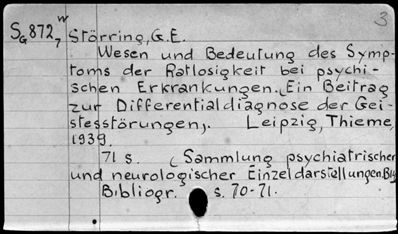 3
S_G 872,7 w Störring, G.E.
Wesen und Bedeutung des Symp-
toms der Ratlosigkeit bei psychi-
schen Erkrankungen. (Ein Beitrag
zur Differentialdiagnose der Gei-
stesstörungen). Leipzig, Thieme,
1939.
71 s. (Sammlung psychiatrischer
und neurologischer Einzeldarstellungen.
Bibliogr. s. 70-71.